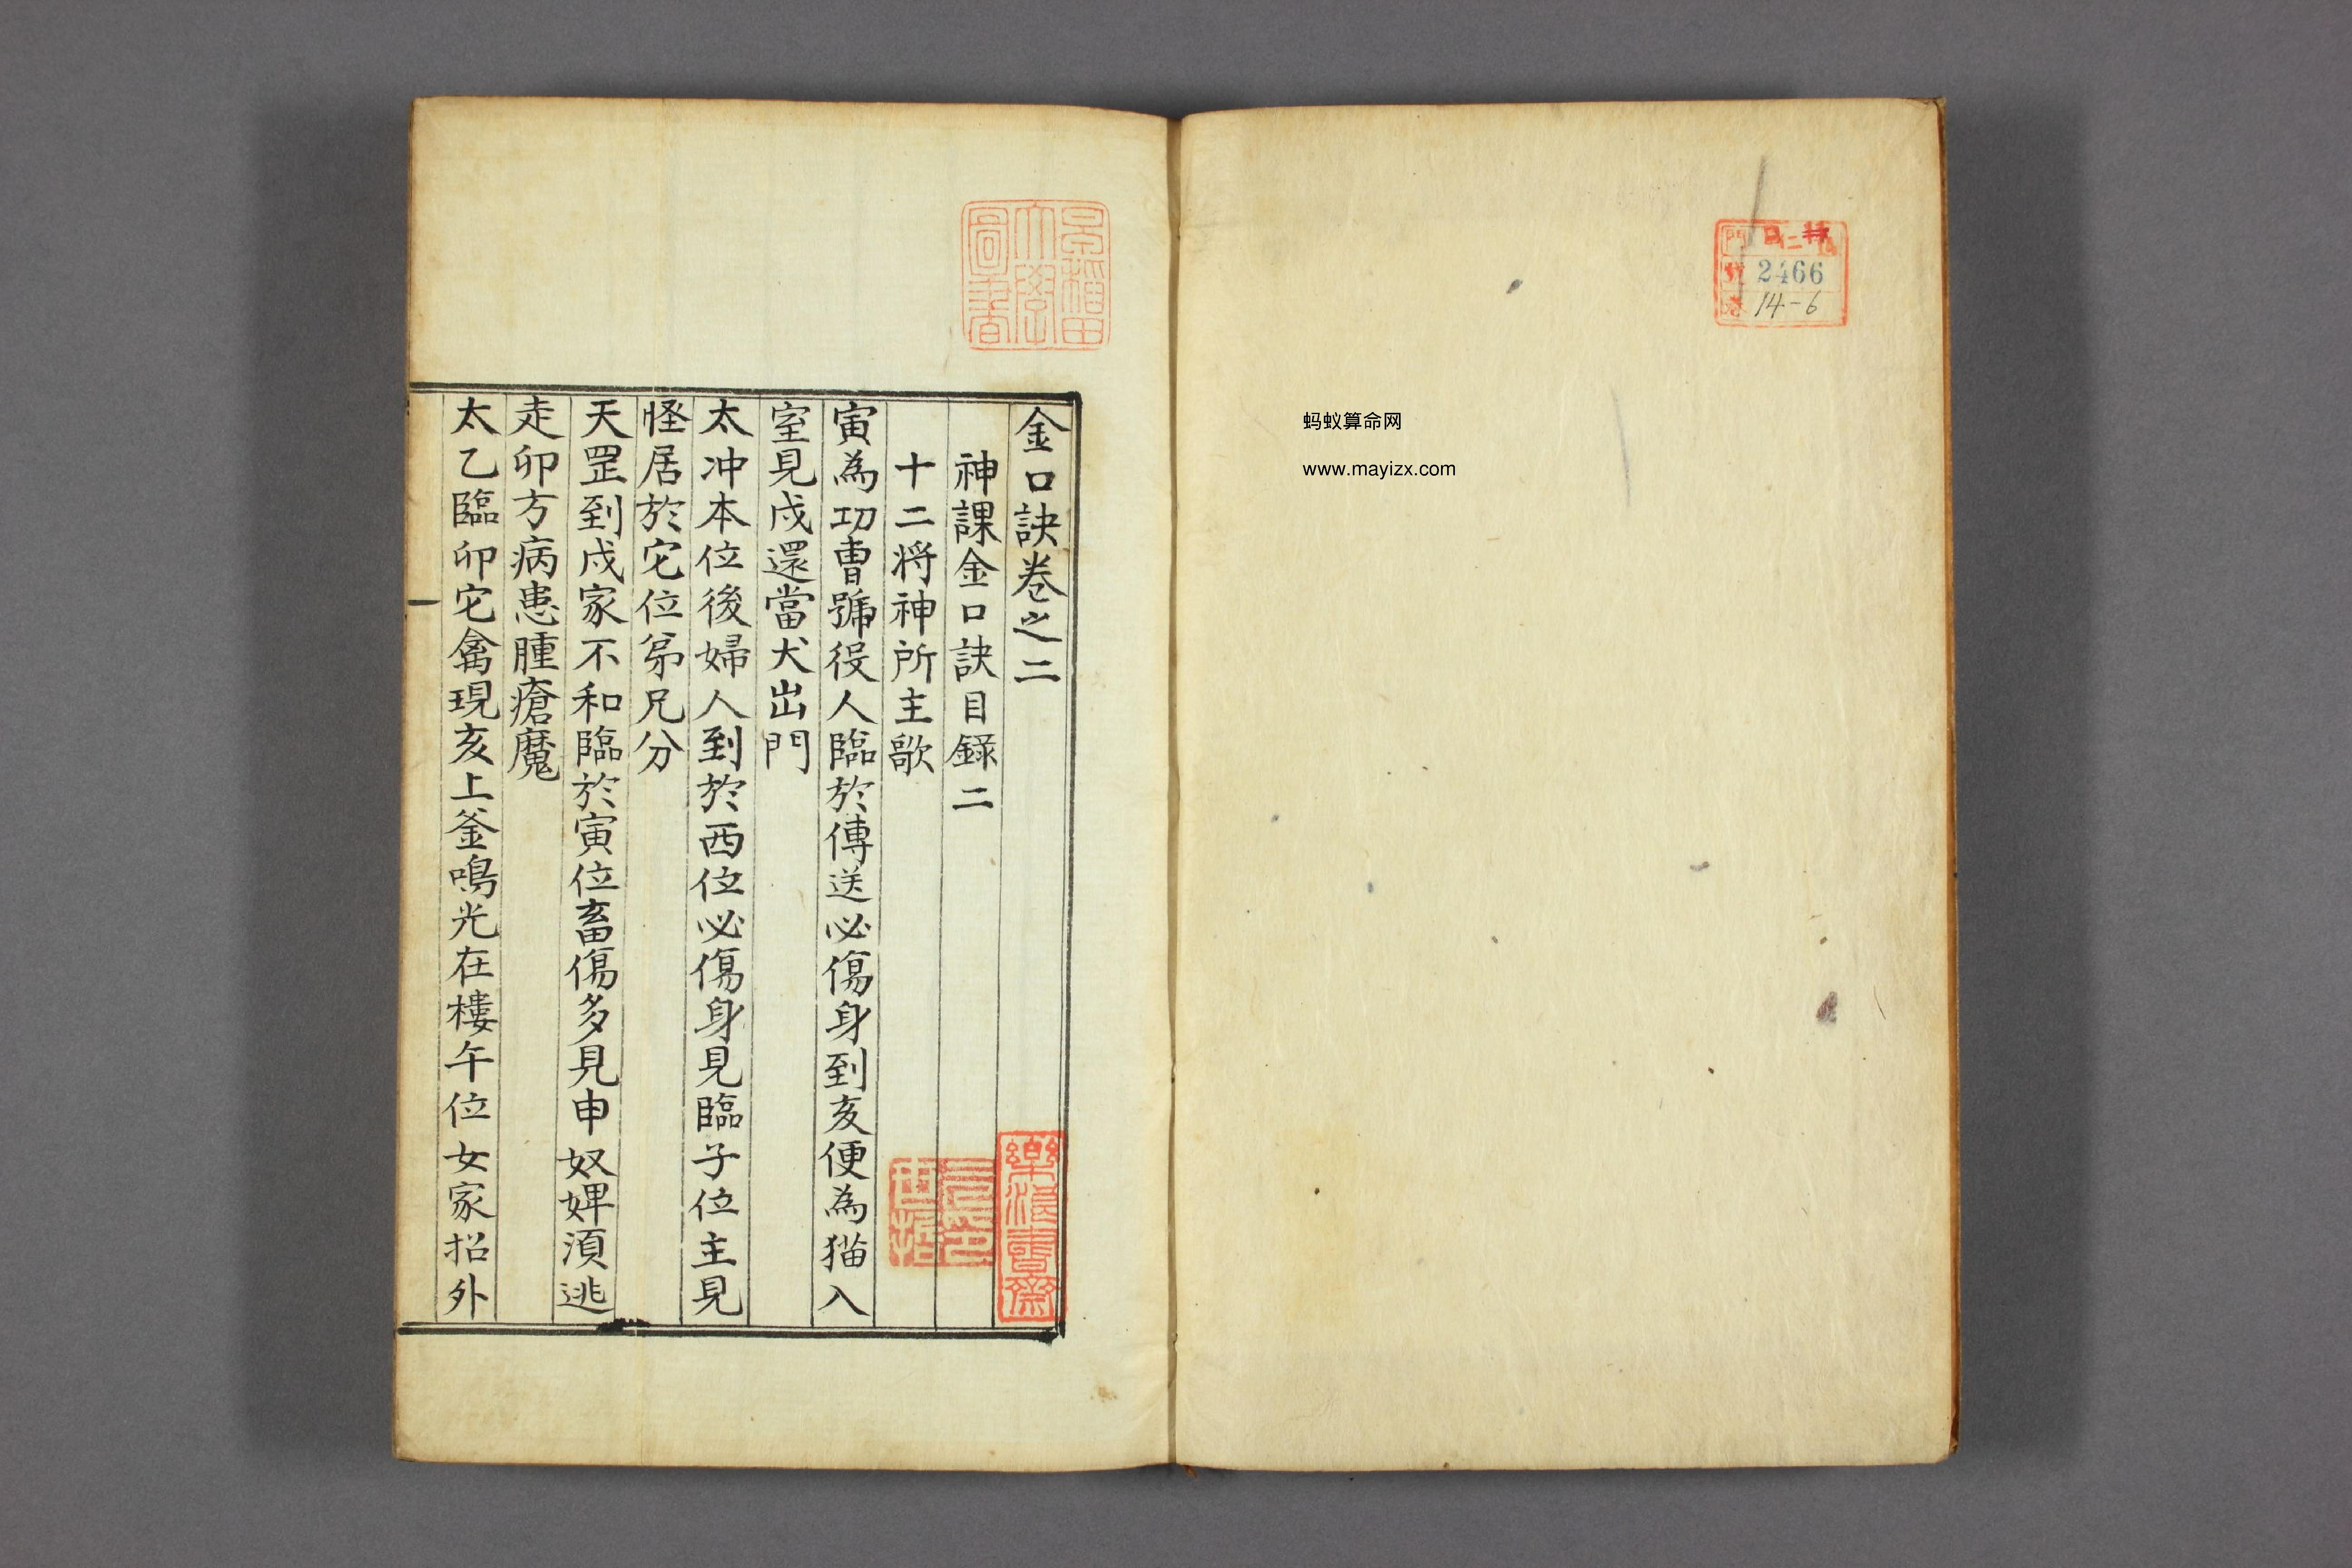 門 二
號 2466
卷 14-6
蚂蚁算命网
www.mayizx.com
早稲田大學圖書
金口訣卷之二
神課金口訣目錄二
十二将神所主歌
寅為功曹號役人臨於傳送必傷身到亥便為猫入
室見戌還當犬出門
太冲本位後婦人到於西位必傷身見臨子位主見
怪居於它位弟兄分
天罡到戌家不和臨於寅位畜傷多見申奴婢湏逃
走卯方病患腫瘡魔
太乙臨卯它禽現亥上釜鳴光在樓午位女家招外
一
樂浪書齋